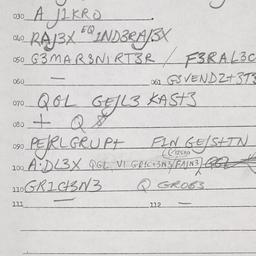 030 A JIKRO
040 RAJ3X EQ IND3RAJ3X
050 G3MAR3NIRT3R / F3RAL3C
060 — 061 G3VEND2+3T3
070 QGL GE/L3 KAST3
080 + Q
090 PE/RLGRUP+ FIN GE/STIN
100 A·DL3X QGL VI
110 GRIC+3N3 Q GRO63
111 — 112 —